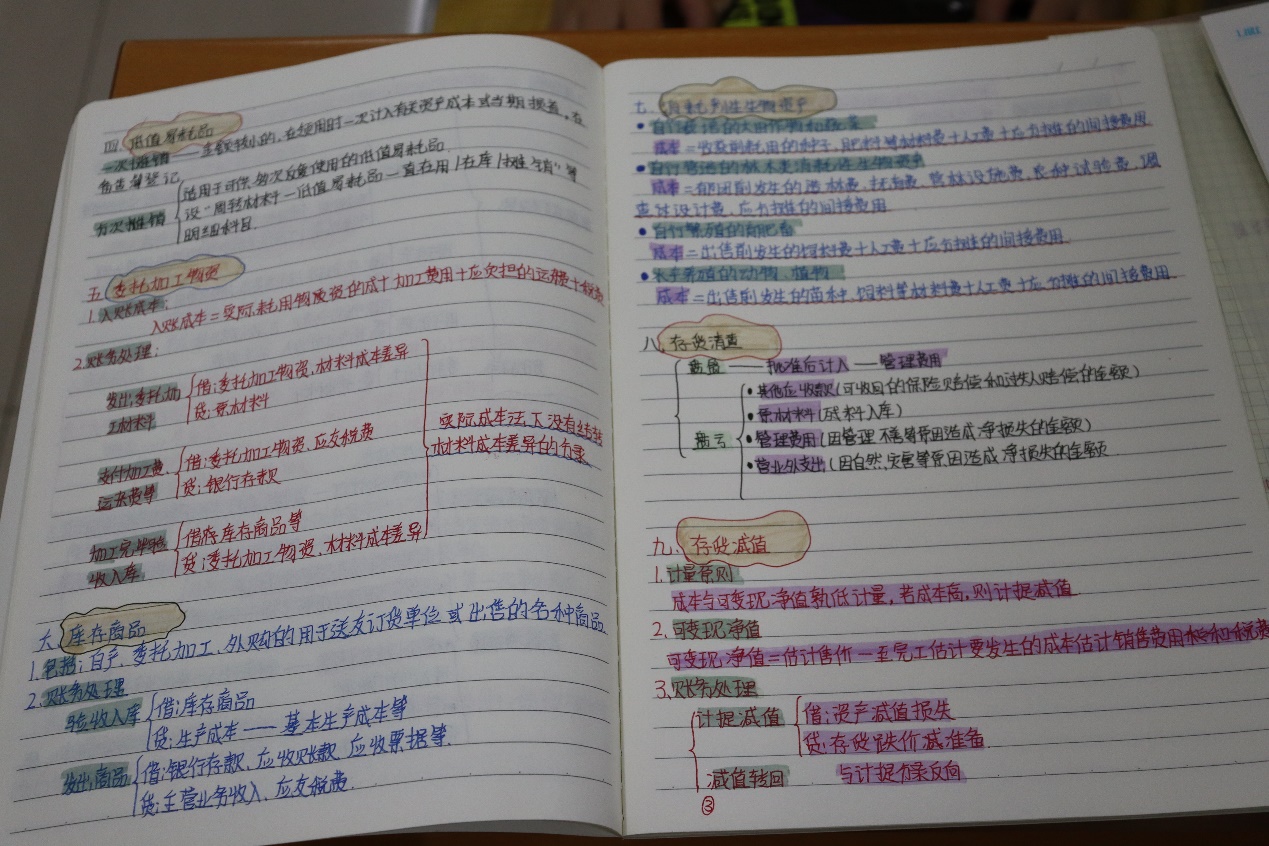 四、低值易耗品
一次摊销——金额较小的,在使用时一次计入有关资产成本或当期损益,在
备查簿登记
分次摊销
适用于可供多次反复使用的低值易耗品
设“周转材料—低值易耗品—在用/在库/摊销”等
明细科目.
五、委托加工物资
1.入账成本:
入账成本=实际耗用物资的成+加工费用+应负担的运杂费+税费
2.账务处理:
发出委托加
工材料
借:委托加工物资、材料成本差异
贷:原材料
支付加工费、
运杂费等
借:委托加工物资、应交税费
贷:银行存款
加工完毕验
收入库
借:库存商品等
贷:委托加工物资、材料成本差异
实际成本法下没有结转
材料成本差异的分录
六、库存商品
1.包括:自产、委托加工、外购的用于送交订货单位或出售的各种商品
2.账务处理
验收入库
借:库存商品
贷:生产成本——基本生产成本等
发出商品
借:银行存款、应收账款、应收票据等.
贷:主营业务收入、应交税费.
七、消耗性生物资产
•自行栽培的大田作物和蔬菜
成本=收获前耗用的种子、肥料等材料费+人工费+应分摊的间接费用
•自行营造的林木类消耗性生物资产
成本=郁闭前发生的造林费、抚育费、营林设施费、良种试验费、调
查设计费、应分摊的间接费用
•自行繁殖的育肥畜
成本=出售前发生的饲料费+人工费+应分摊的间接费用
•水产养殖的动物、植物
成本=出售前发生的苗种、饲料等材料费+人工费+应分摊的间接费用
八、存货清查
盘盈——批准后计入——管理费用
盘亏
•其他应收款(可收回的保险赔偿和过失人赔偿的金额)
•原材料(残料入库)
•管理费用(因管理不善等原因造成净损失的金额)
•营业外支出(因自然灾害等原因造成净损失的金额
九、存货减值
1.计量原则
成本与可变现净值孰低计量,若成本高,则计提减值
2.可变现净值
可变现净值=估计售价一至完工估计要发生的成本估计销售费用和税费
3.账务处理
计提减值
借:资产减值损失
贷:存货跌价减准备
减值转回
与计提分录反向
③